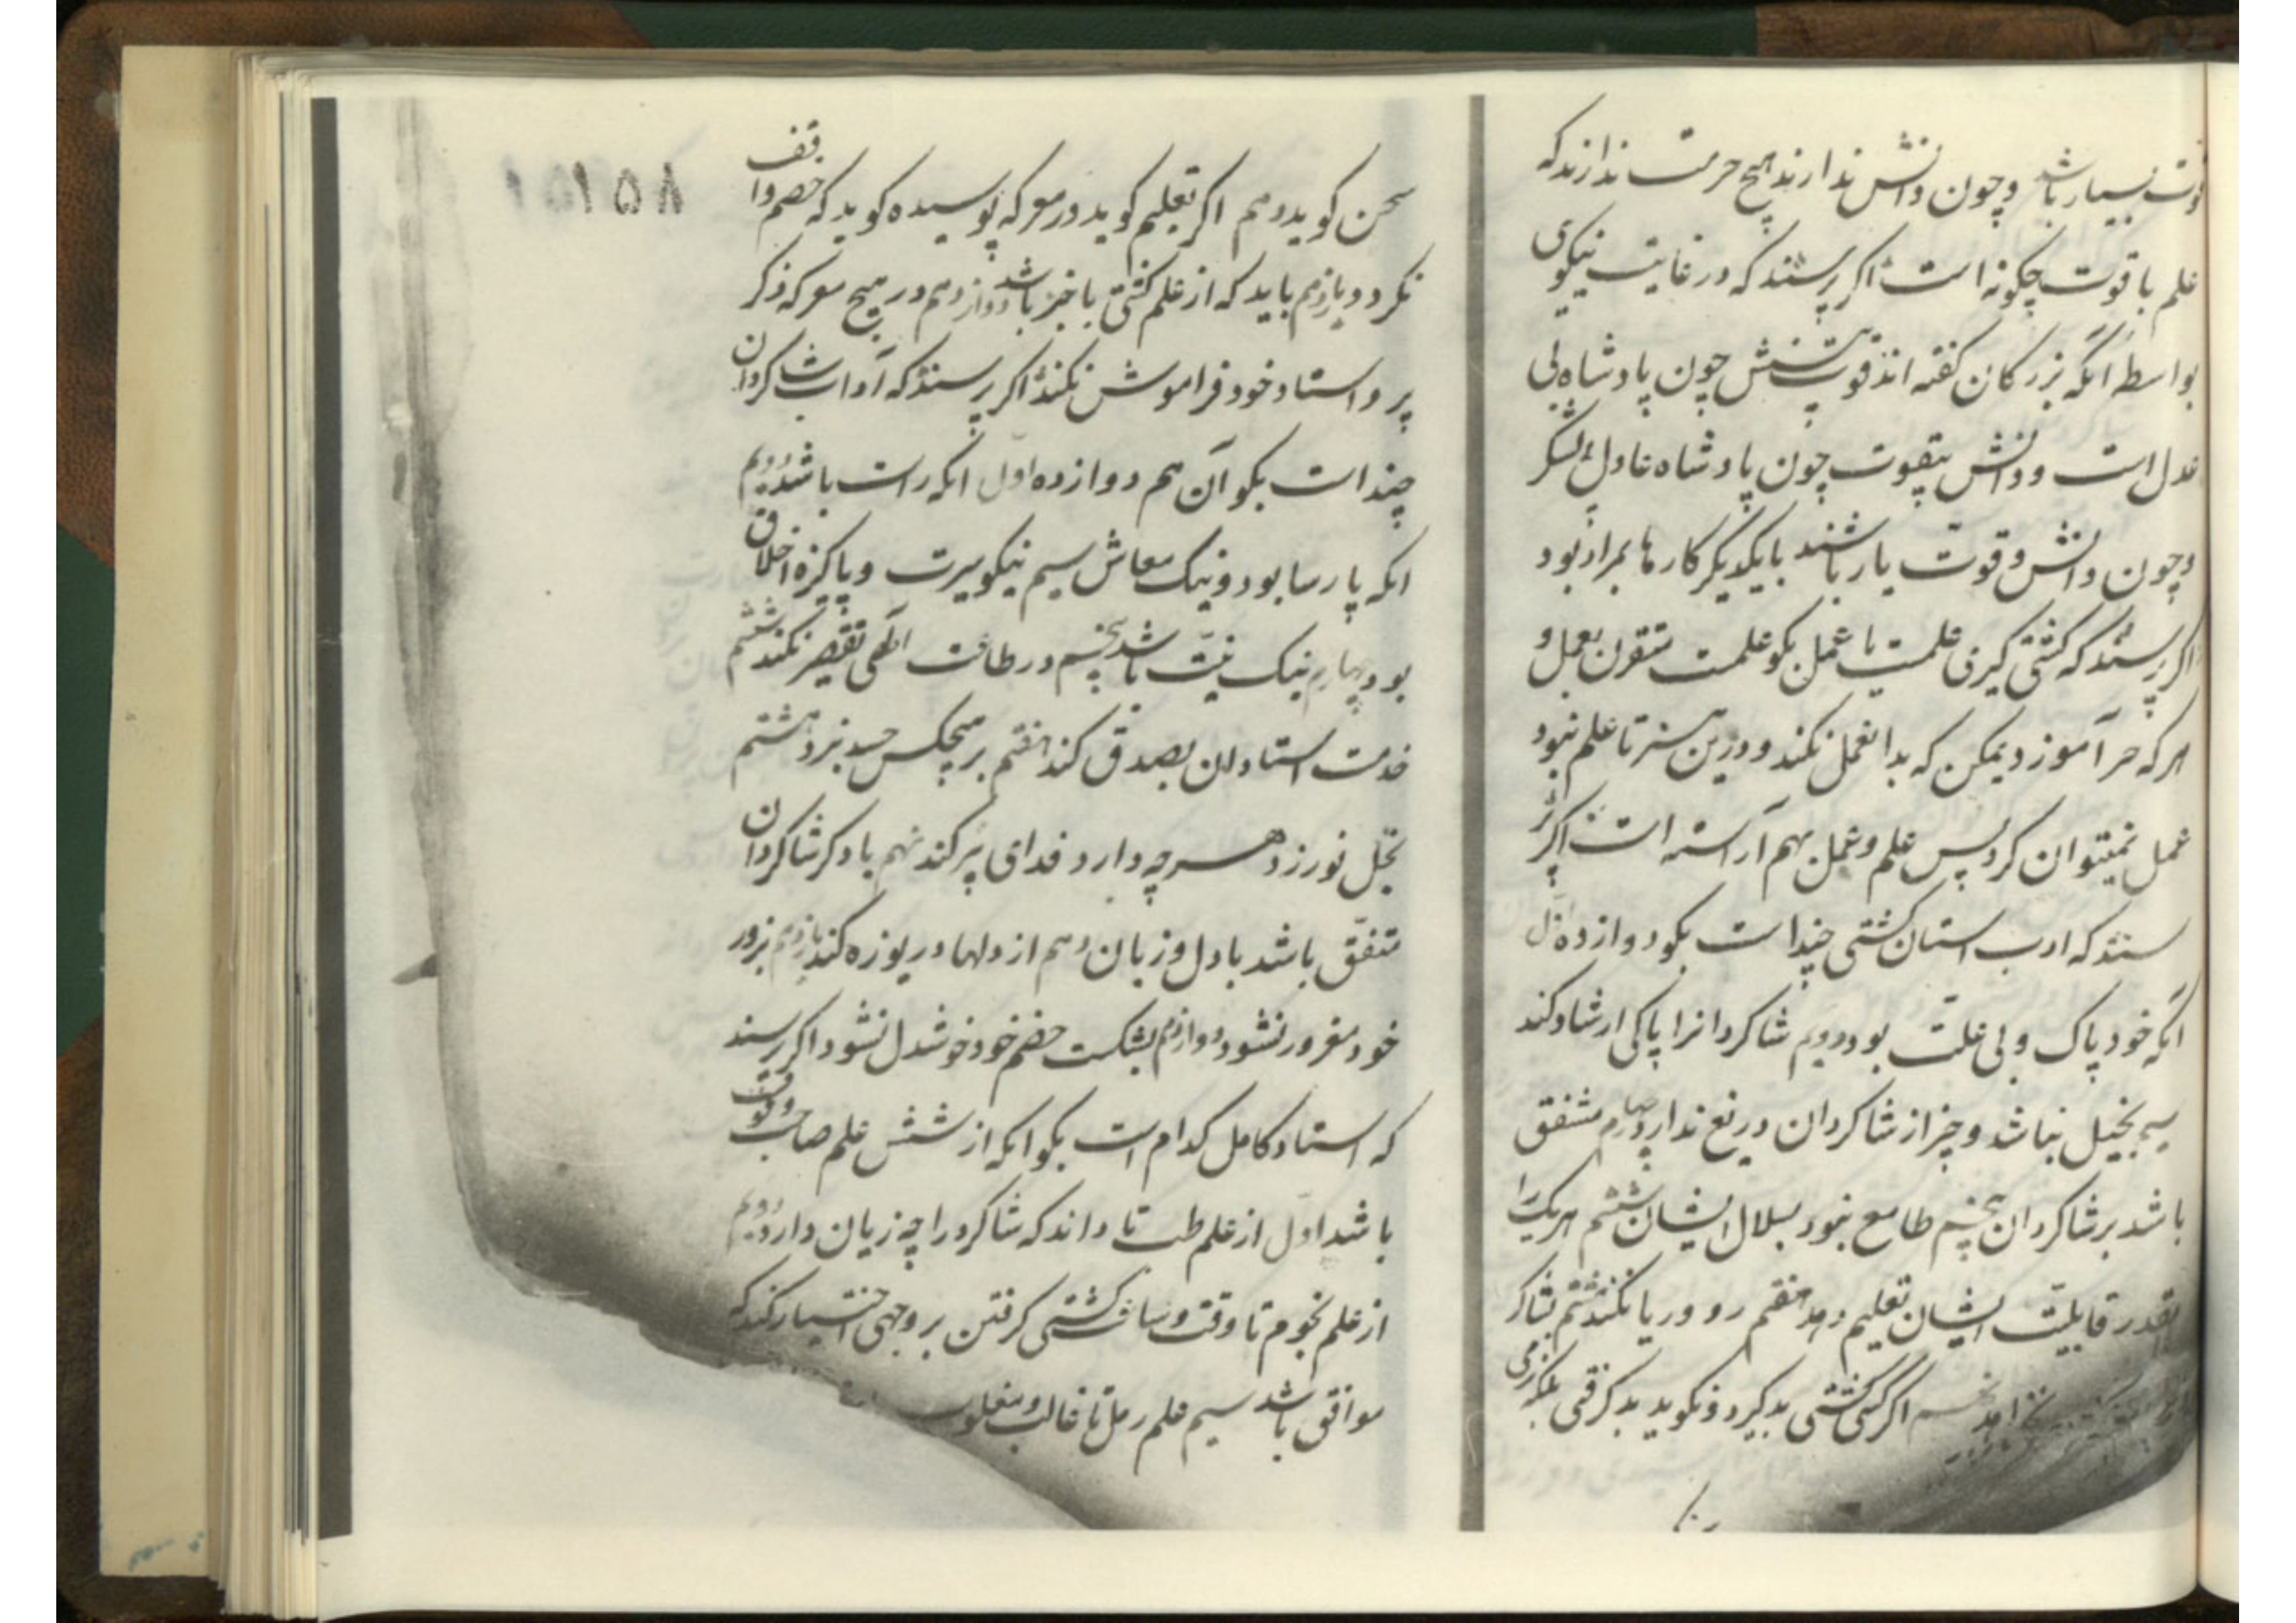 قوت بسیار باشد و چون دانش ندارند هیچ حرمت ندارند که
علم با قوت چگونه است اگر پرسند که در غایت نیکوی
بواسطه آنکه بزرکان کفته اند قوت بیدانش چون پادشاه بی
عدل است و دانش بیقوت چون پادشاه عادل بی لشکر
و چون دانش و قوت یار باشند با یکدیکر کارها بمراد بود
اکر پرسند که کشتی کیری علمست یا عمل بکو علمست مقرون بعمل و
هر که آموزد یمکن که بدان عمل نکند و درین هنر تا علم نبود
عمل نمیتوان کرد پس علم و عمل بهم آراسته است اکر پر
سند که ادب استان کشتی چند است بکو دوازده اول
آنکه خود پاک و بی علت بود دویم شاکردانرا پاکی ارشاد کند
سیم بخیل نباشد و چیز از شاکردان دریغ ندارد چهارم مشفق
باشد بر شاکردان پنجم طامع نبود بمال ایشان ششم هر یک را
بقدر قابلیت ایشان تعلیم دهد هفتم روی و ریا نکند هشتم بشاکرد
نخواهد نهم اکر کسی کشتی بد کیرد نکوید بد کرفتی بلکه برمی
۱۵۸
سخن کوید دهم اکر تعلیم کوید در معرکه پوسیده کوید که خصم واقف
نکردد یازدهم باید که از علم کشتی با خبر باشد دوازدهم در هیچ معرکه ذکر
پیر و استاد خود فراموش نکند اکر پرسند که آداب شاکردان
چند است بکو آن هم دوازده اول انکه راست باشد دویم
انکه پارسا بود و نیک معاش سیم نیکو سیرت و پاکیزه اخلاق
بود چهارم نیک نیت باشد پنجم در طاعت الهی تقصیر نکند ششم
خدمت استادان بصدق کند هفتم بر هیچکس حسد نبرد هشتم
بخل نورزد هر چه دارد فدای پیر کند نهم با دکر شاکردان
متفق باشد با دل و زبان دهم از دلها دریوزه کند یازدهم بزور
خود مغرور نشود دوازدهم بشکست خصم خود خوشدل نشود اکر پرسند
که استاد کامل کدام است بکو انکه از شش علم صاحب وقوف
باشد اول از علم طب تا داند که شاکرد را چه زیان دارد دویم
از علم نجوم تا وقت و ساعت کشتی کرفتن بر وجهی اختیار کند که
موافق باشد سیم علم رمل تا غالب و مغلوب